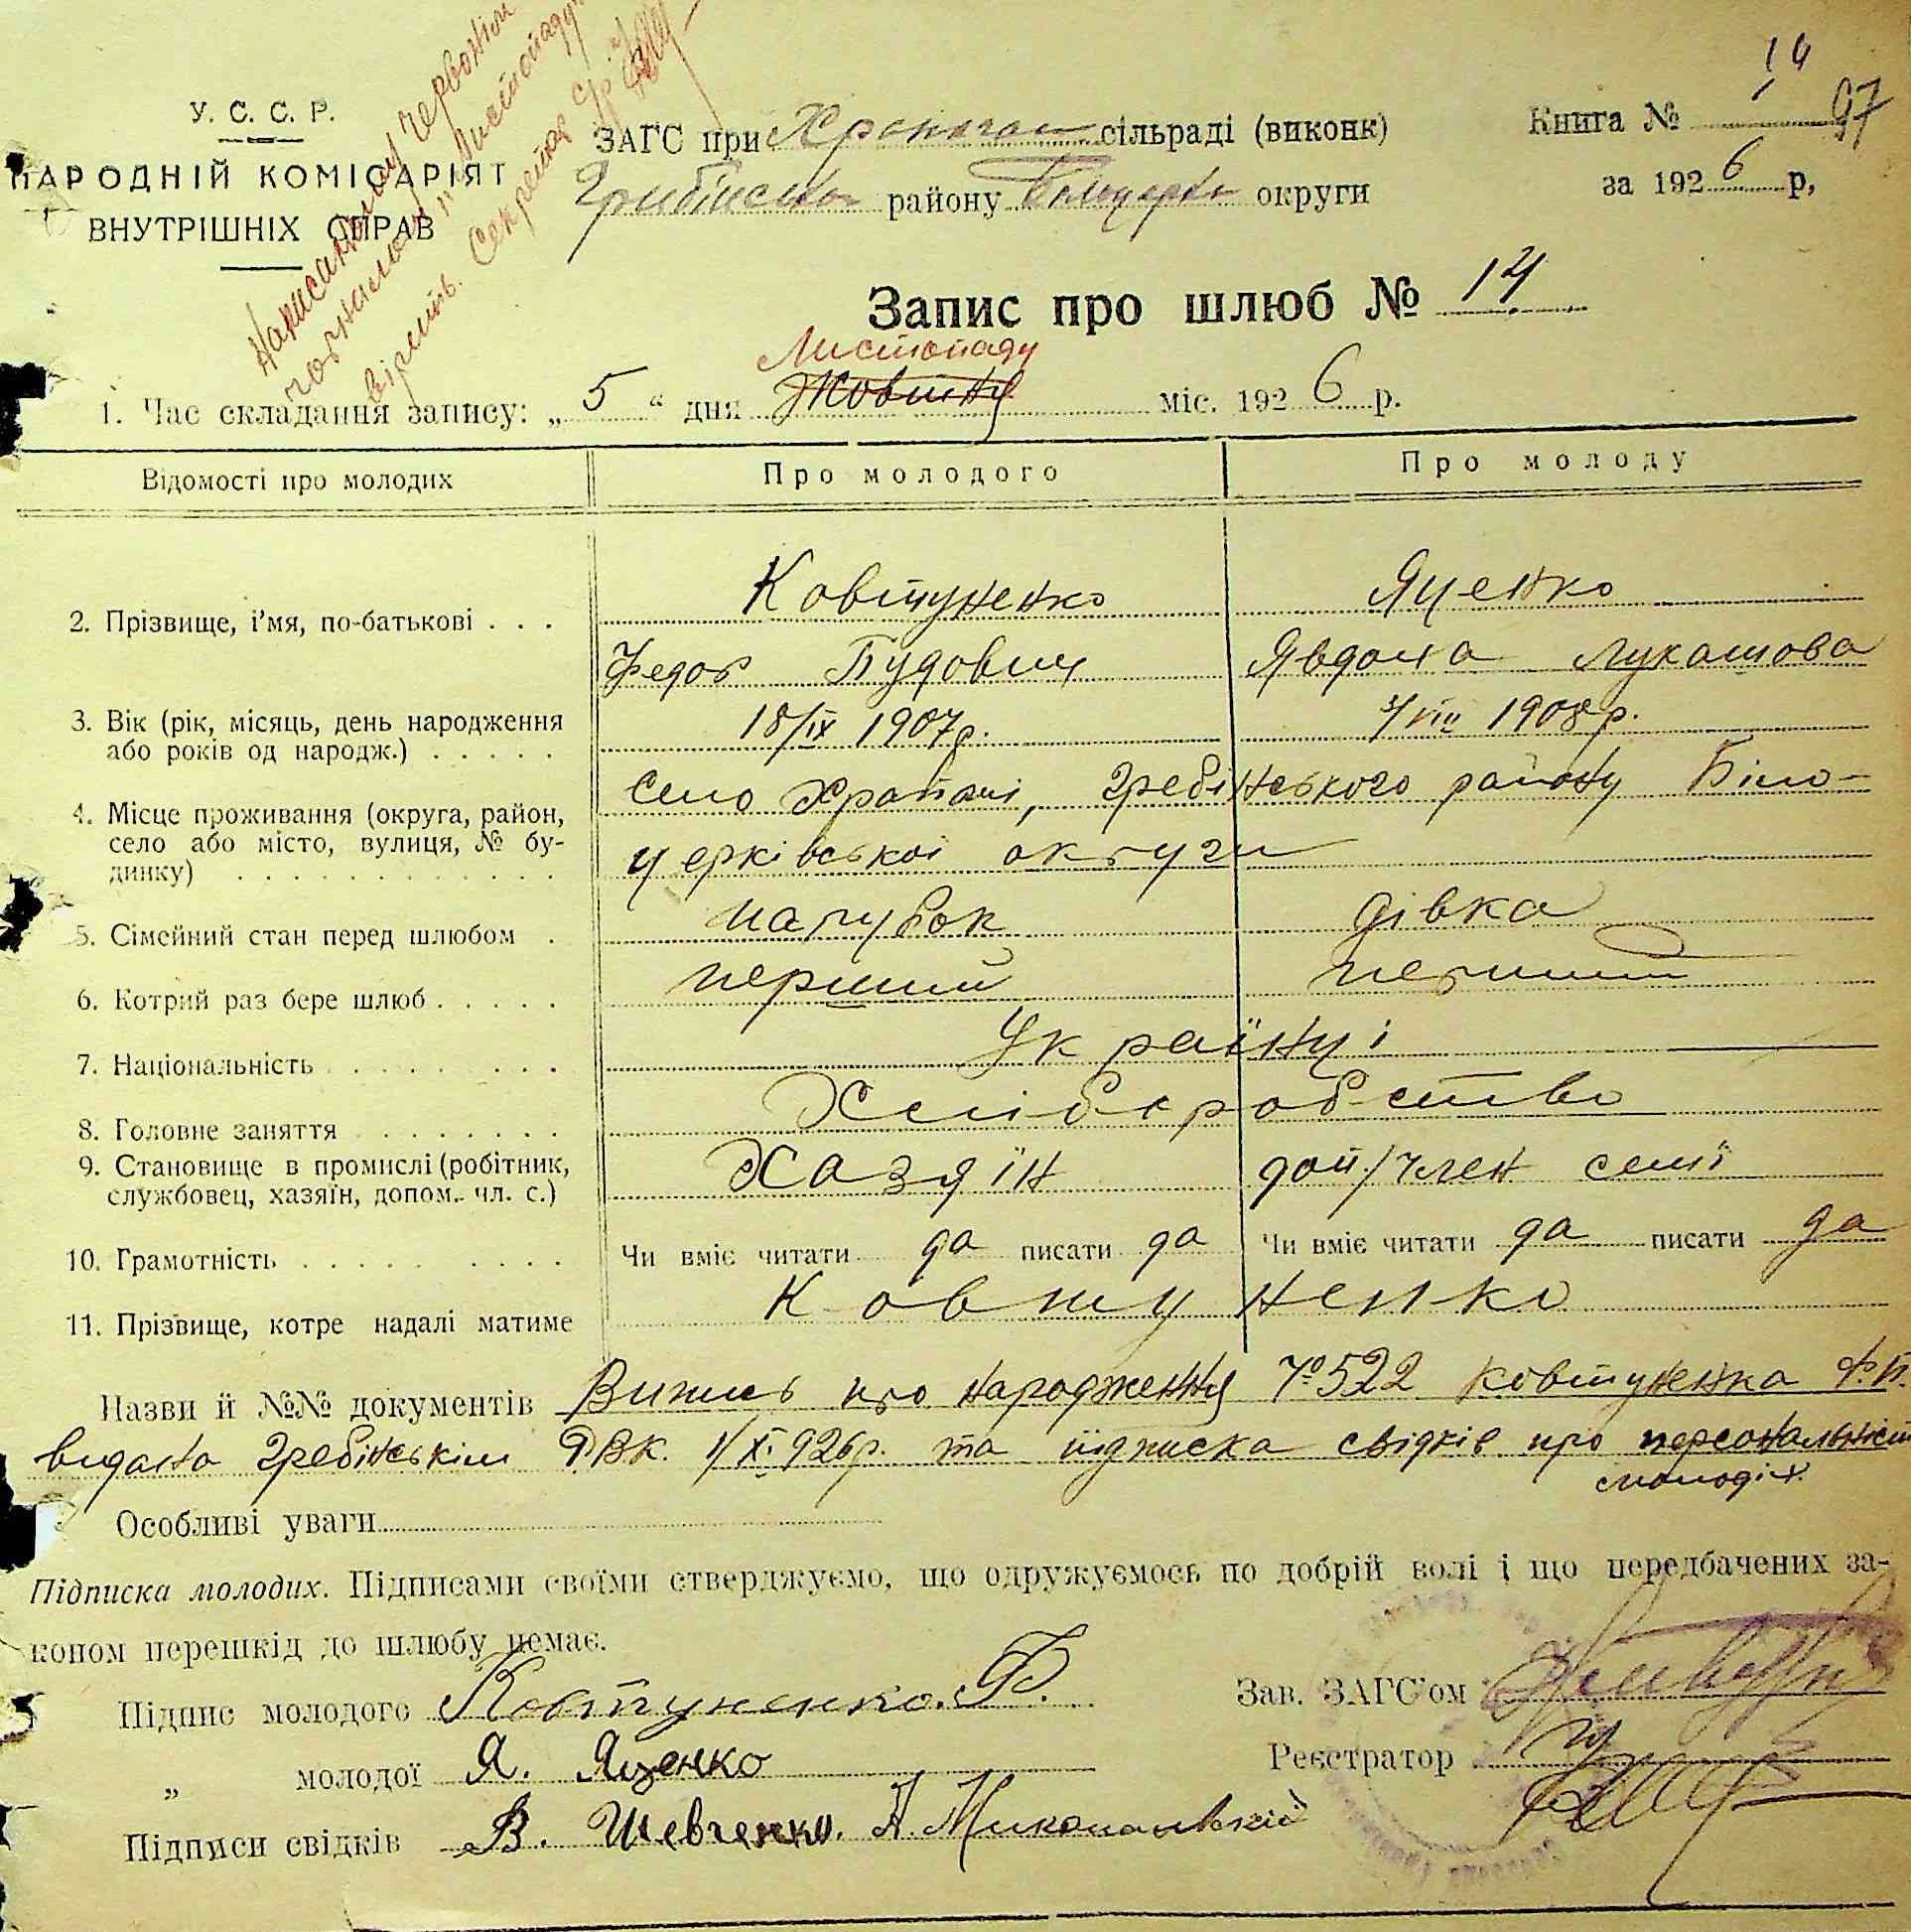 Написанному червонім
чорнилом "Листопаду"
вірить. Секретар с/р
У. С. С. Р.
НАРОДНІЙ КОМІСАРІЯТ
ВНУТРІШНІХ СПРАВ
ЗАГС при сільраді (виконк)
району округи
14
Книга № 97
за 1926 р,
Запис про шлюб № 14
Листопаду
1. Час складання запису: „5“ дня Жовтня міс. 1926 р.
Відомості про молодих Про молодого Про молоду
2. Прізвище, і'мя, по-батькові . . . Ковтуненко Яценко
Федор Пудович Явдоха Лукашова
3. Вік (рік, місяць, день народження 18/IX 1907р. /VIII 1908р.
або років од народж.) . . . . .
4. Місце проживання (округа, район, село Храпачі, Гребінського району Біло-
село або місто, вулиця, № бу- церківської округи
динку) . . . . . . . . . . . .
5. Сімейний стан перед шлюбом . парубок дівка
6. Котрий раз бере шлюб . . . . . перший перший
7. Національність . . . . . . . . Українці
8. Головне заняття . . . . . . . . Хліборобство
9. Становище в промислі (робітник, Хазяїн доп/член семї
службовец, хазяїн, допом. чл. с.)
10. Грамотність . . . . . . . . . Чи вміє читати да писати да Чи вміє читати да писати да
11. Прізвище, котре надалі матиме Ковтуненко
Назви й №№ документів Випись про народження № 522 Ковтуненка Ф.П.
видана Гребінськім РВК. 1/XI 926р. та підписка свідків про персональність
молодіх.
Особливі уваги
Підписка молодих. Підписами своїми стверджуємо, що одружуємось по добрій волі і що передбачених за-
коном перешкід до шлюбу немає.
Підпис молодого Ковтуненко. Ф.
Зав. ЗАГС'ом
„ молодої Я. Яценко
Реєстратор
Підписи свідків В. Шевченко. А. Миколаевский